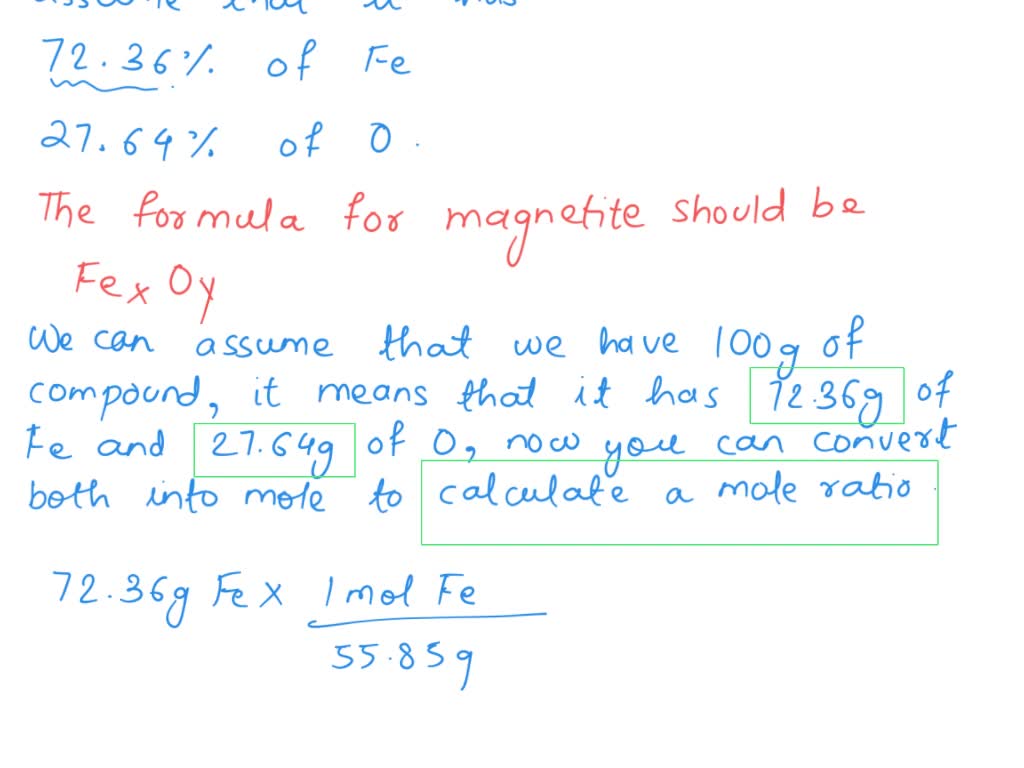 72.36% of Fe
27.64% of O.
The formula for magnetite should be
Fex Oy
We can assume that we have 100g of
compound, it means that it has 72.36g of
Fe and 27.64g of O, now you can convert
both into mole to calculate a mole ratio.
72.36g Fe x 1 mol Fe
55.85g